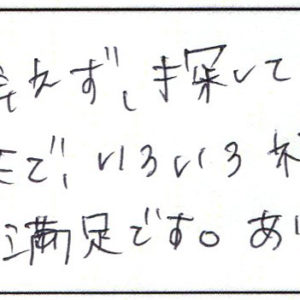 えず、探して
で、いろいろ
満足です。あ